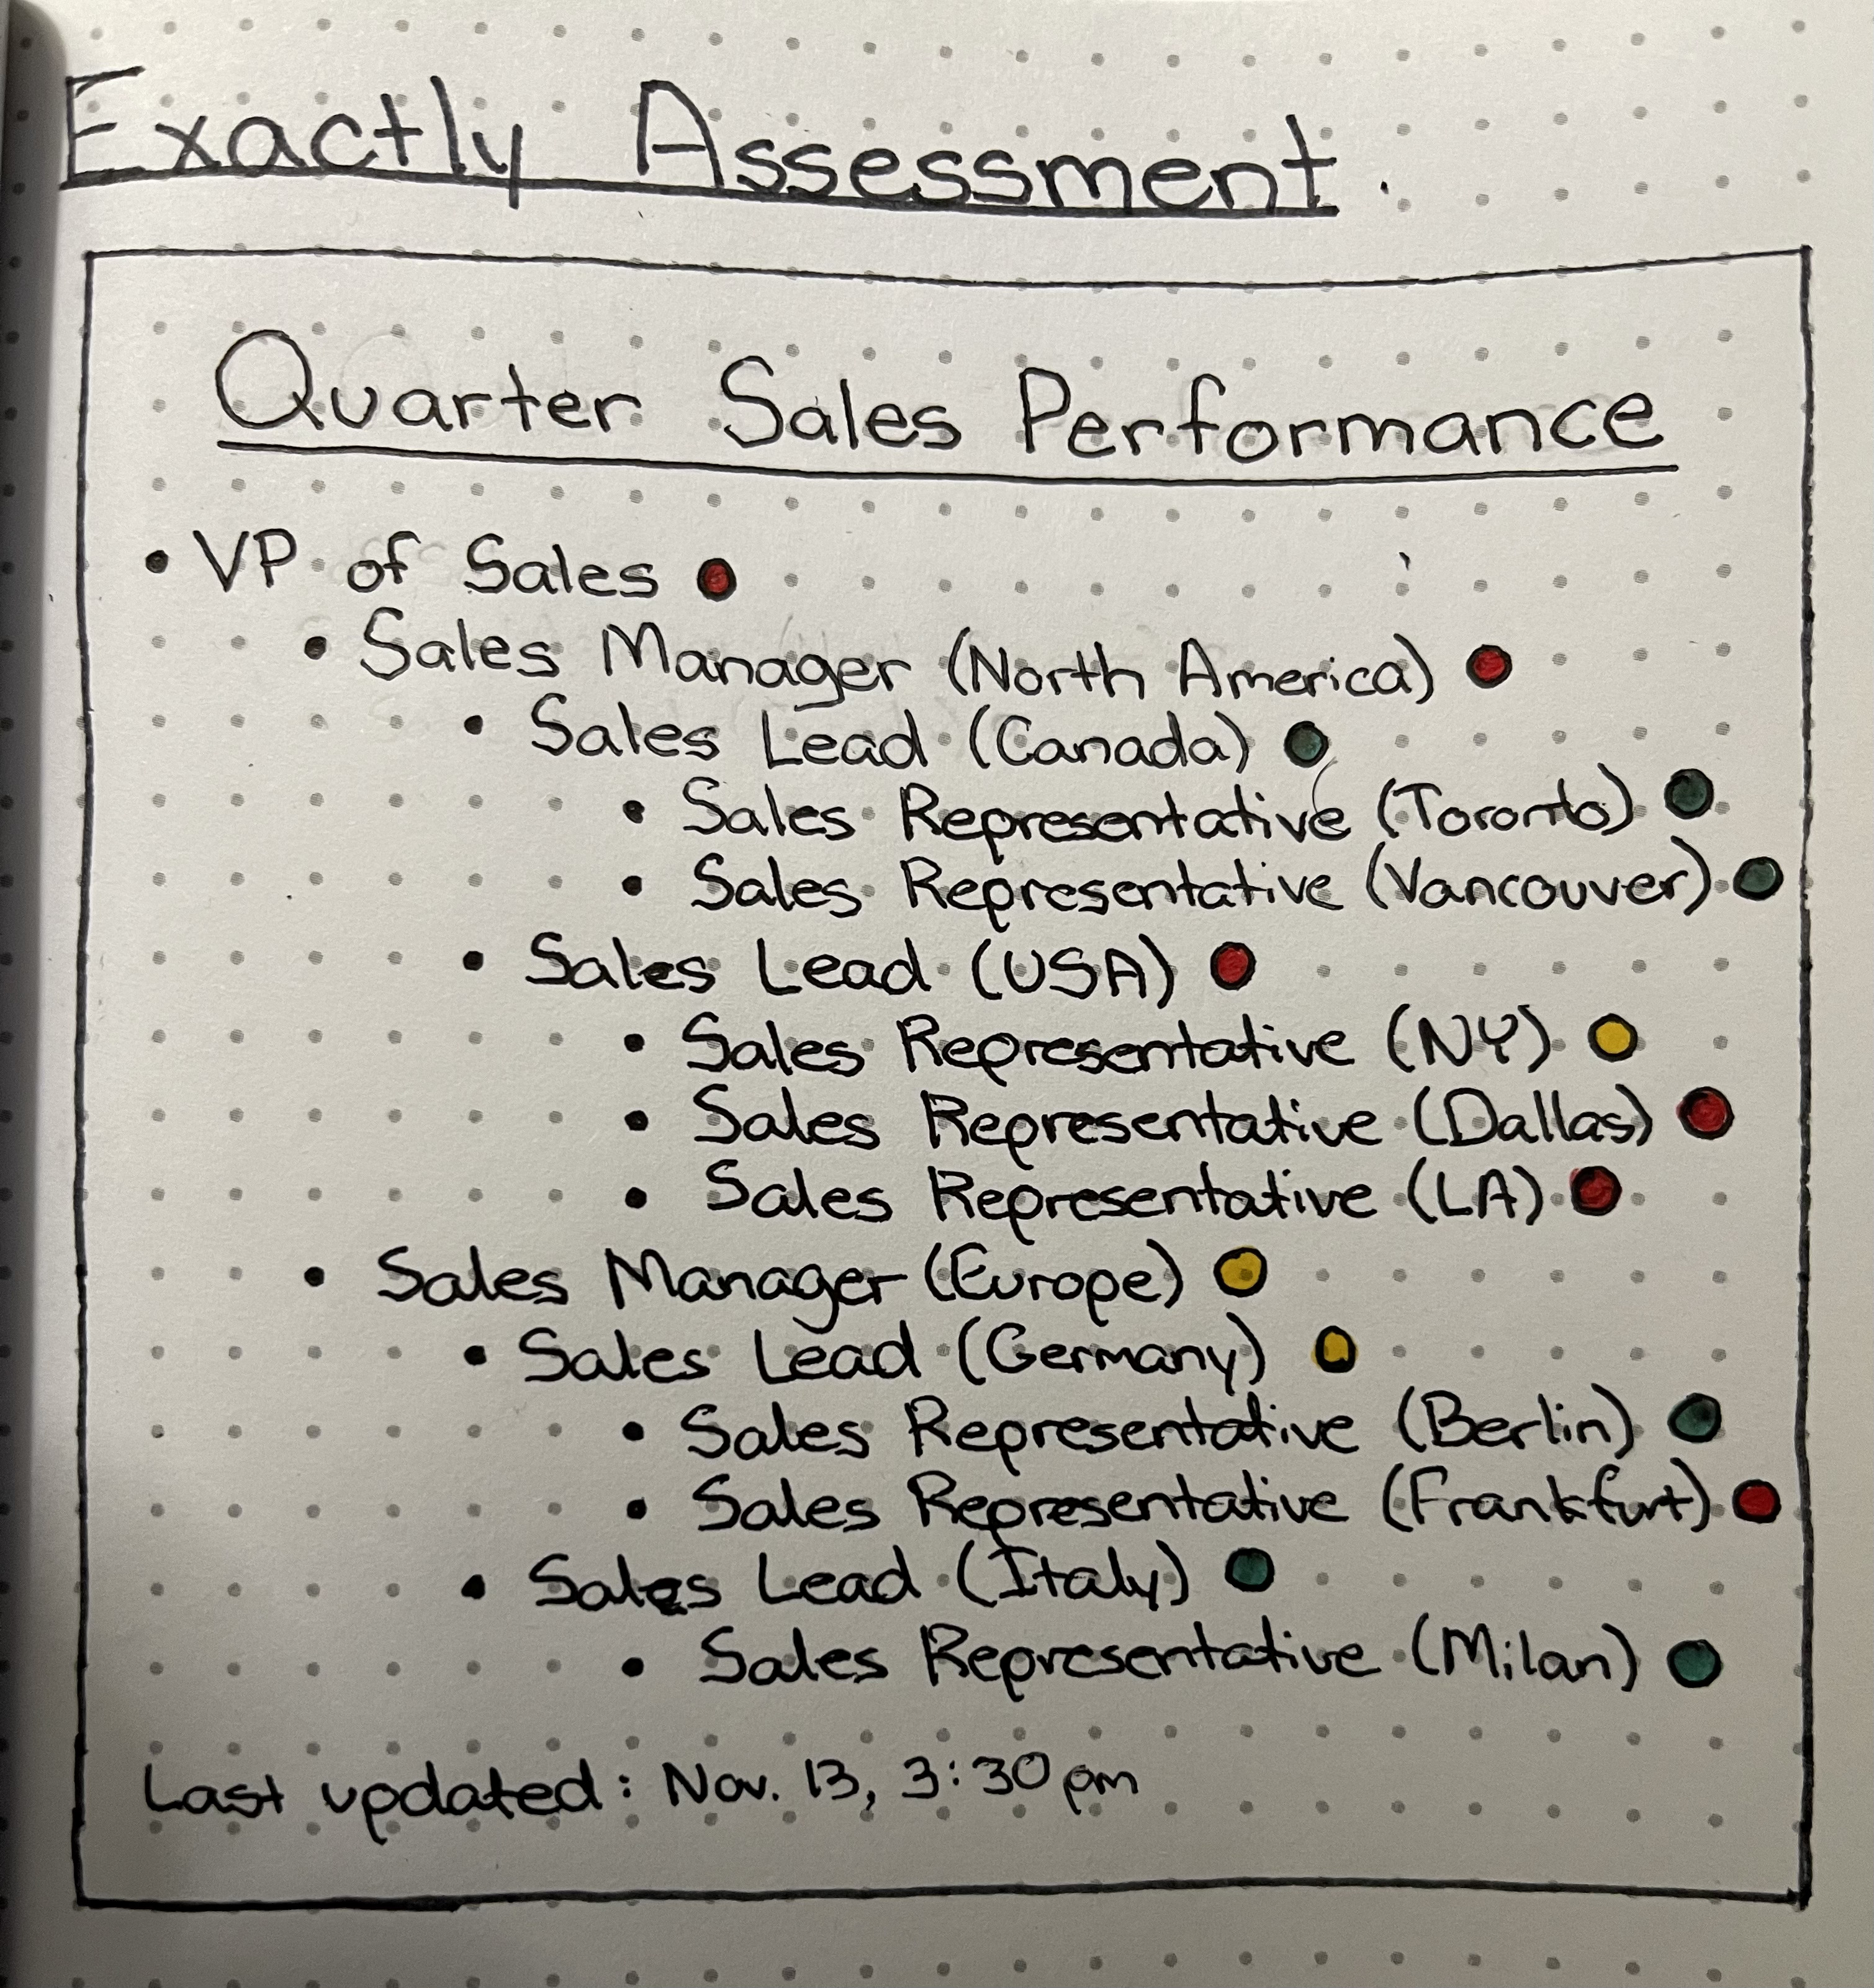 Exactly Assessment
Quarter Sales Performance
• VP of Sales
• Sales Manager (North America)
• Sales Lead (Canada)
• Sales Representative (Toronto)
• Sales Representative (Vancouver)
• Sales Lead (USA)
• Sales Representative (NY)
• Sales Representative (Dallas)
• Sales Representative (LA)
• Sales Manager (Europe)
• Sales Lead (Germany)
• Sales Representative (Berlin)
• Sales Representative (Frankfurt)
• Sales Lead (Italy)
• Sales Representative (Milan)
Last updated: Nov. 13, 3:30pm